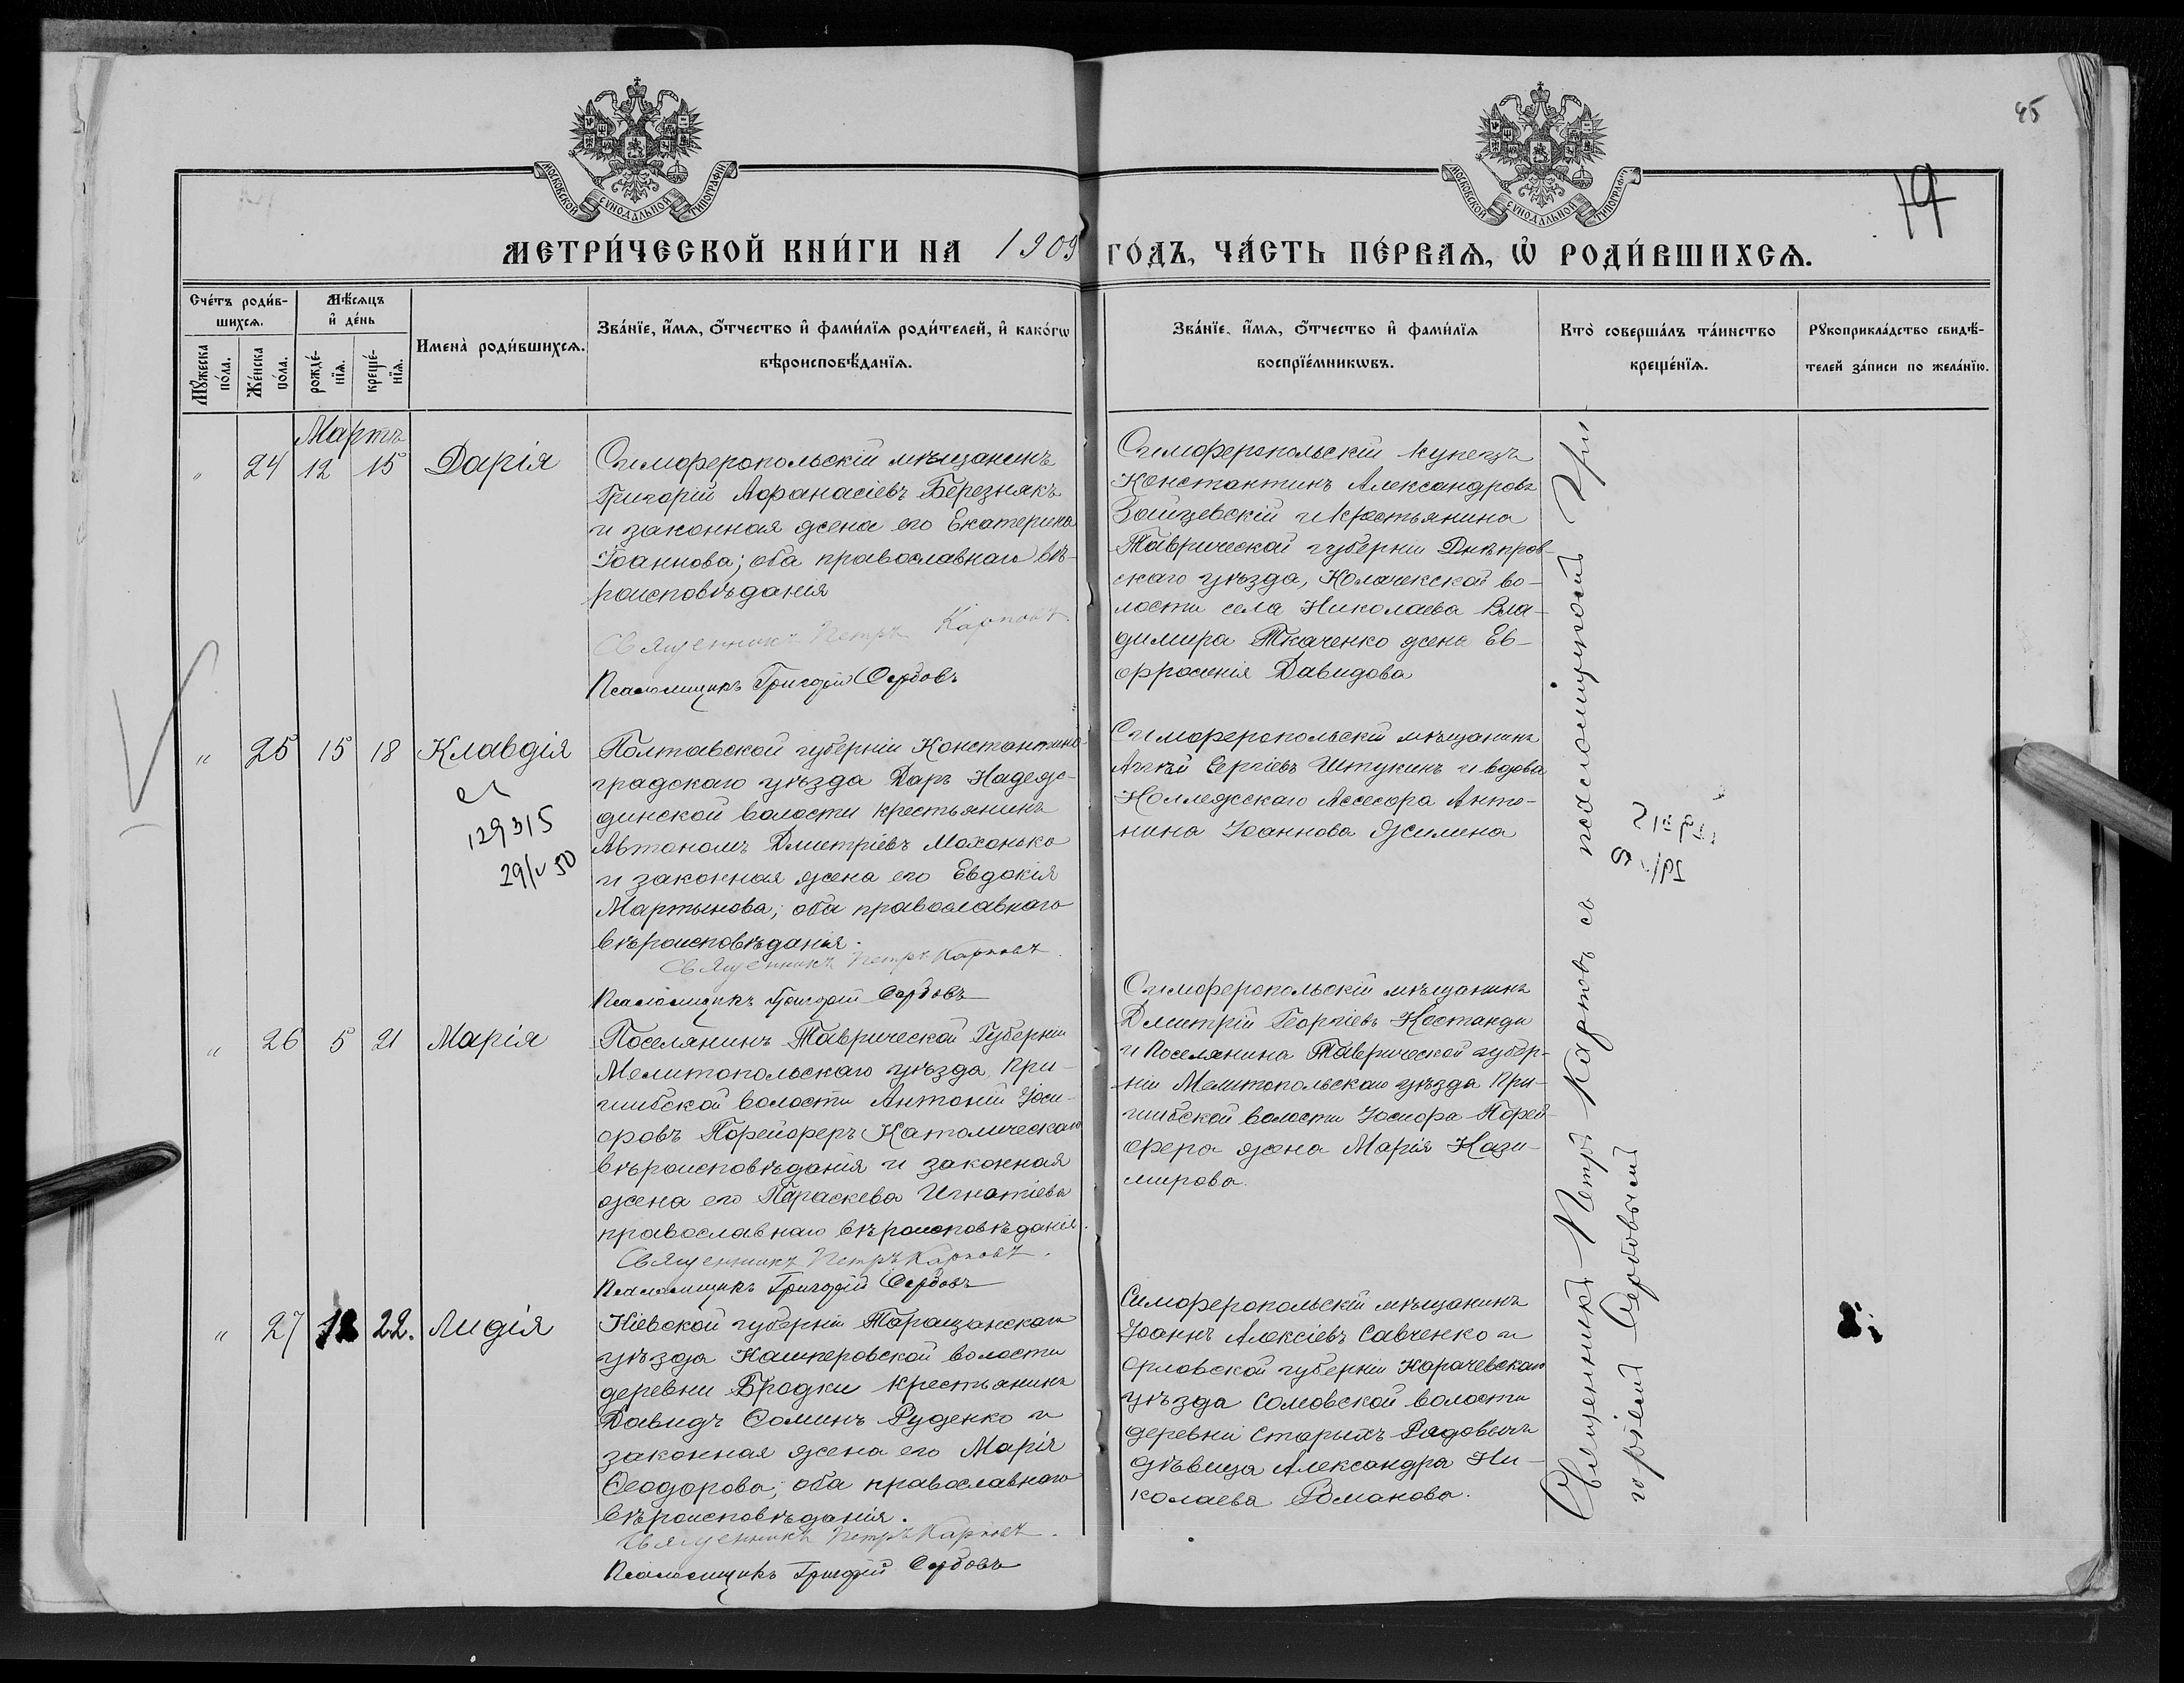 45
19
МОСКОВСКОЙ СѴНОДАЛЬНОЙ ТИПОГРАФІИ
МОСКОВСКОЙ СѴНОДАЛЬНОЙ ТИПОГРАФІИ
МЕТРИ́ЧЕСКОЙ КНИ́ГИ НА 1909 ГО́ДЪ, ЧА́СТЬ ПЕ́РВАѦ, Ѡ҆ РОДИ́ВШИХСѦ.
Сче́тъ роди́в-
шихсѧ.
Мꙋ́жеска по́ла.
Же́нска по́ла.
Мѣ́сѧцъ
и҆ де́нь
рожде́-
нїѧ.
креще́-
нїѧ.
Имена̀ роди́вшихсѧ.
Зва́нїе, и҆́мѧ, ѻ҆́тчество и҆ фами́лїѧ роди́телей, и҆ како́гѡ
вѣроисповѣ́данїѧ.
Зва́нїе, и҆́мѧ, ѻ҆́тчество и҆ фами́лїѧ
воспрїе́мникѡвъ.
Кто̀ соверша́лъ та́инство
креще́нїѧ.
Рꙋкоприкла́дство свидѣ́-
телей за́писи по жела́нїю.
Мартъ
" 24 12 15 Дарія
Симферопольскій мѣщанинъ
Григорій Афанасіевъ Березнякъ
и законная жена его Екатерина
Іоаннова; оба православнаго вѣ-
роисповѣданія
Священникъ Петръ Карповъ.
Псаломщикъ Григорій Сербовъ
Симферопольскій купецъ
Константинъ Александровъ
Зайцевскій и крестьянина
Таврической губерніи Днѣпров-
скаго уѣзда, Колачекской во-
лости села Николаева Вла-
димира Ткаченко жена Ев-
фросинія Давидова
" 25 15 18 Клавдія
129315
29/V 50
Полтавской губерніи Константино-
градскаго уѣзда Даръ Надеж-
динской волости крестьянинъ
Автономъ Дмитріевъ Махонько
и законная жена его Евдокія
Мартынова; оба православнаго
вѣроисповѣданія.
Священникъ Петръ Карповъ.
Псаломщикъ Григорій Сербовъ
Симферопольскій мѣщанинъ
Аггѣй Сергіевъ Штукинъ и вдова
Коллежскаго Ассесора Анто-
нина Іоаннова Жилина
" 26 5 21 Марія
Поселянинъ Таврической Губерніи
Мелитопольскаго уѣзда, При-
шибской волости Антоній Іоси-
фовъ Порейферъ Католическаго
вѣроисповѣданія и законная
жена его Параскева Игнатіева
православнаго вѣроисповѣданія.
Священникъ Петръ Карповъ.
Псаломщикъ Григорій Сербовъ
Симферопольскій мѣщанинъ
Дмитрій Георгіевъ Костанди
и поселянина Таврической губер-
ніи Мелитопольскаго уѣзда При-
шибской волости Іосифа Порей-
фера жена Марія Кази-
мирова.
" 27 12 22. Лидія
Кіевской губерніи Таращанскаго
уѣзда Кашперовской волости
деревни Бродки крестьянинъ
Давидъ Ѳоминъ Руденко и
законная жена его Марія
Ѳеодорова; оба православнаго
вѣроисповѣданія.
Священникъ Петръ Карповъ.
Псаломщикъ Григорій Сербовъ
Симферопольскій мѣщанинъ
Іоаннъ Алексіевъ Савченко и
Орловской губерніи Карачевскаго
уѣзда Сомовской волости
деревни Старыхъ Радовичи
дѣвица Александра Ни-
колаева Романова.
Священникъ Петръ Карповъ съ псаломщикомъ Гри-
горіемъ Сербовымъ